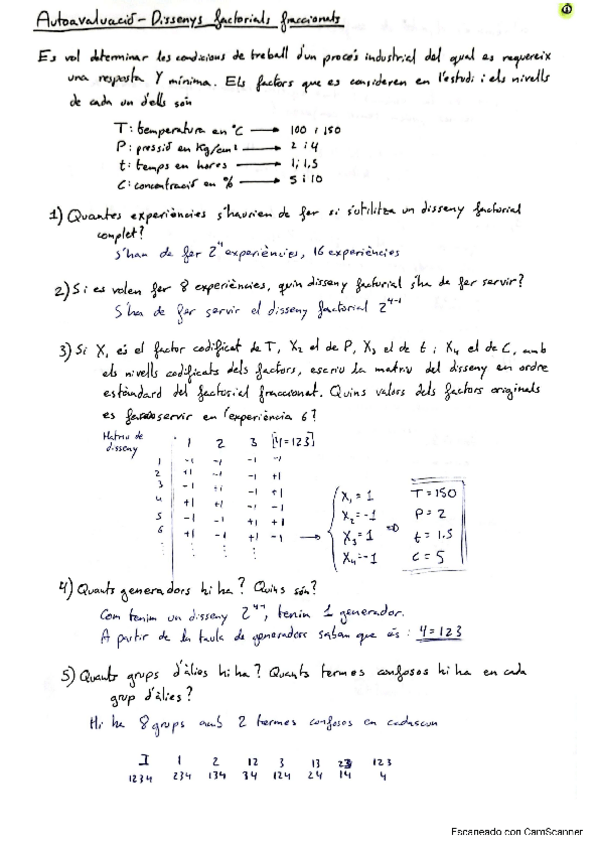 ①
Autoavaluació - Dissenys factorials fraccionats
Es vol determinar les condicions de treball d'un procés industrial del qual es requereix
una resposta Y mínima. Els factors que es consideren en l'estudi i els nivells
de cada un d'ells són
T: temperatura en °C → 100 i 150
P: pressió en Kg/cm² → 2 i 4
t: temps en hores → 1 i 1,5
C: concentració en % → 5 i 10
1) Quantes experiències s'haurien de fer si s'utilitza un disseny factorial
complet?
S'han de fer 2⁴ experiències, 16 experiències
2) Si es volen fer 8 experiències, quin disseny factorial s'ha de fer servir?
S'ha de fer servir el disseny factorial 2⁴⁻¹
3) Si X₁ és el factor codificat de T, X₂ el de P, X₃ el de t i X₄ el de C, amb
els nivells codificats dels factors, escriu la matriu del disseny en ordre
estàndard del factorial fraccionat. Quins valors dels factors originals
es servir en l'experiència 6?
Matriu de
disseny
1 2 3 [4=123]
1 -1 -1 -1 -1
2 +1 -1 -1 +1
3 -1 +1 -1 +1
4 +1 +1 -1 -1
5 -1 -1 +1 +1
6 +1 -1 +1 -1 →
X₁ = 1
X₂ = -1
X₃ = 1
X₄ = -1
⇒
T = 150
P = 2
t = 1.5
C = 5
4) Quants generadors hi ha? Quins són?
Com tenim un disseny 2⁴⁻¹, tenim 1 generador.
A partir de la taula de generadors sabem que és: 4=123
5) Quants grups d'àlies hi ha? Quants termes confosos hi ha en cada
grup d'àlies?
Hi ha 8 grups amb 2 termes confosos en cadascun
I 1 2 12 3 13 23 123
1234 234 134 34 124 24 14 4
Escaneado con CamScanner